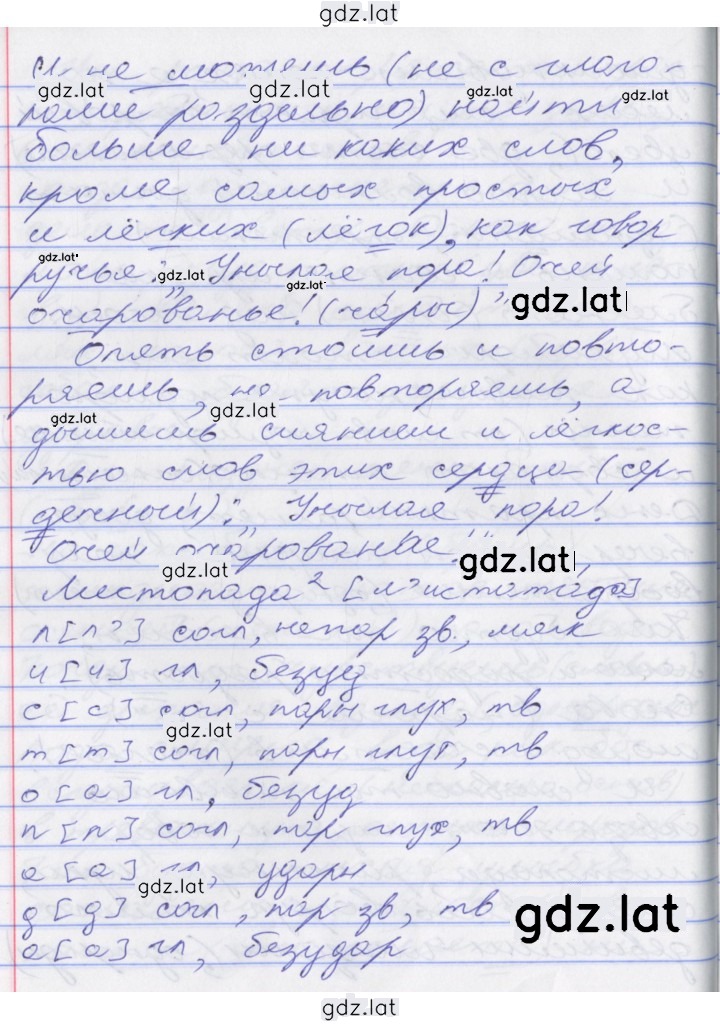 gdz.lat
И не можешь (не с глаго-
лами раздельно) найти
больше ни каких слов,
кроме самых простых
и лёгких (лёгок), как говор
ручья: „Унылая пора! Очей
очарованье! (чары)"
Опять стоишь и повто-
ряешь, не повторяешь, а
дышишь сиянием и лёгкос-
тью слов этих сердца (сер-
дечный): „Унылая пора!
Очей очарованье"
Листопада² [л'истапáда]
л [л'] согл, непар зв., мягк
и [и] гл, безуд
с [с] согл, парн глух, тв
т [т] согл, парн глух, тв
о [а] гл, безуд
п [п] согл, пар глух, тв
а [а] гл, ударн
д [д] согл, пар зв, тв
а [а] гл, безудар
gdz.lat